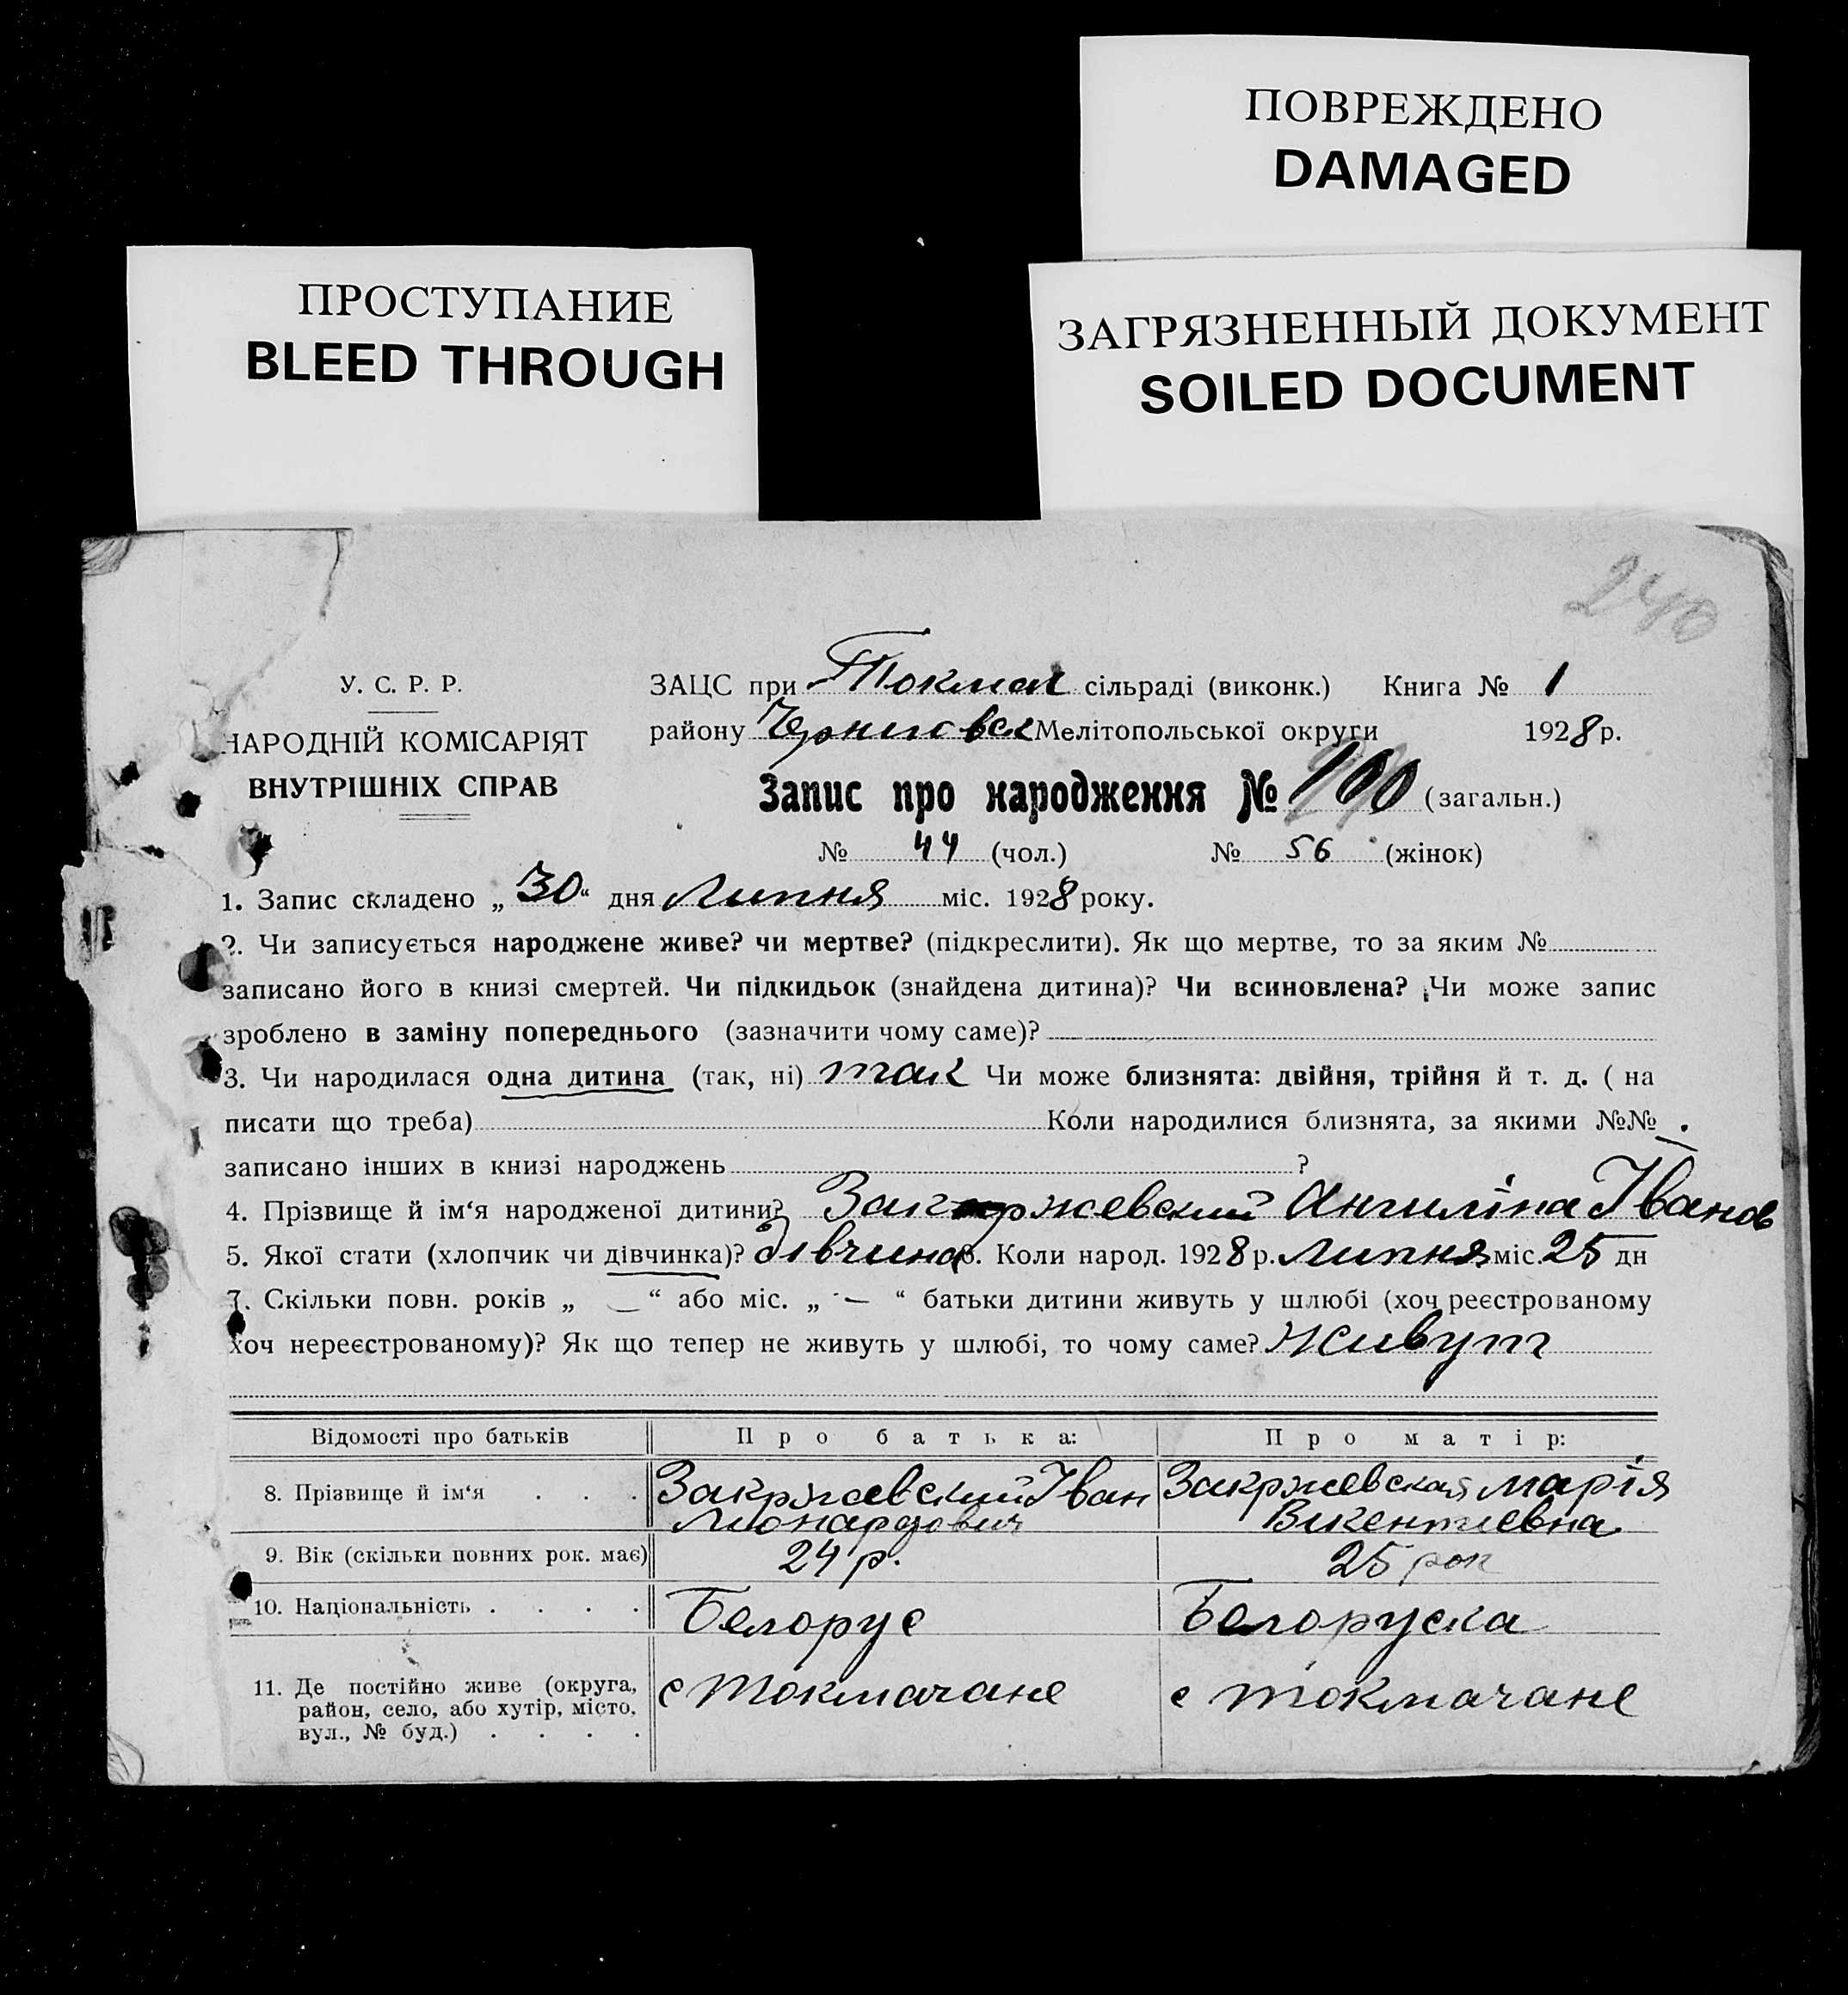 ПОВРЕЖДЕНО
DAMAGED
ПРОСТУПАНИЕ
BLEED THROUGH
ЗАГРЯЗНЕННЫЙ ДОКУМЕНТ
SOILED DOCUMENT
240
У. С. Р. Р.
НАРОДНІЙ КОМІСАРІЯТ
ВНУТРІШНІХ СПРАВ
ЗАЦС при Токмач сільраді (виконк.) Книга № 1
району Черниговск Мелітопольської округи 1928 р.
Запис про народження № 100 (загальн.)
№ 44 (чол.) № 56 (жінок)
1. Запис складено „30“ дня Липня міс. 1928 року.
2. Чи записується народжене живе? чи мертве? (підкреслити). Як що мертве, то за яким №
записано його в книзі смертей. Чи підкидьок (знайдена дитина)? Чи всиновлена? Чи може запис
зроблено в заміну попереднього (зазначити чому саме)?
3. Чи народилася одна дитина (так, ні) так Чи може близнята: двійня, трійня й т. д. ( на
писати що треба) Коли народилися близнята, за якими №№
записано інших в книзі народжень ?
4. Прізвище й ім‘я народженої дитини? Закржевский Ангиліна Іванов
5. Якої стати (хлопчик чи дівчинка)? дівчина 6. Коли народ. 1928 р. Липня міс. 25 дн
7. Скільки повн. років „ — “ або міс. „ — “ батьки дитини живуть у шлюбі (хоч реєстрованому
хоч нереєстрованому)? Як що тепер не живуть у шлюбі, то чому саме? Живут
Відомості про батьків Про батька: Про матір:
8. Прізвище й ім‘я . . . Закржевский Іван Закржевская Марія
Лионардович Викентиевна
9. Вік (скільки повних рок. має) 24 р. 25 рок
10. Національність . . . . Белорус Белоруска
11. Де постійно живе (округа, с Токмачане с Токмачане
район, село, або хутір, місто,
вул., № буд.) . . . .